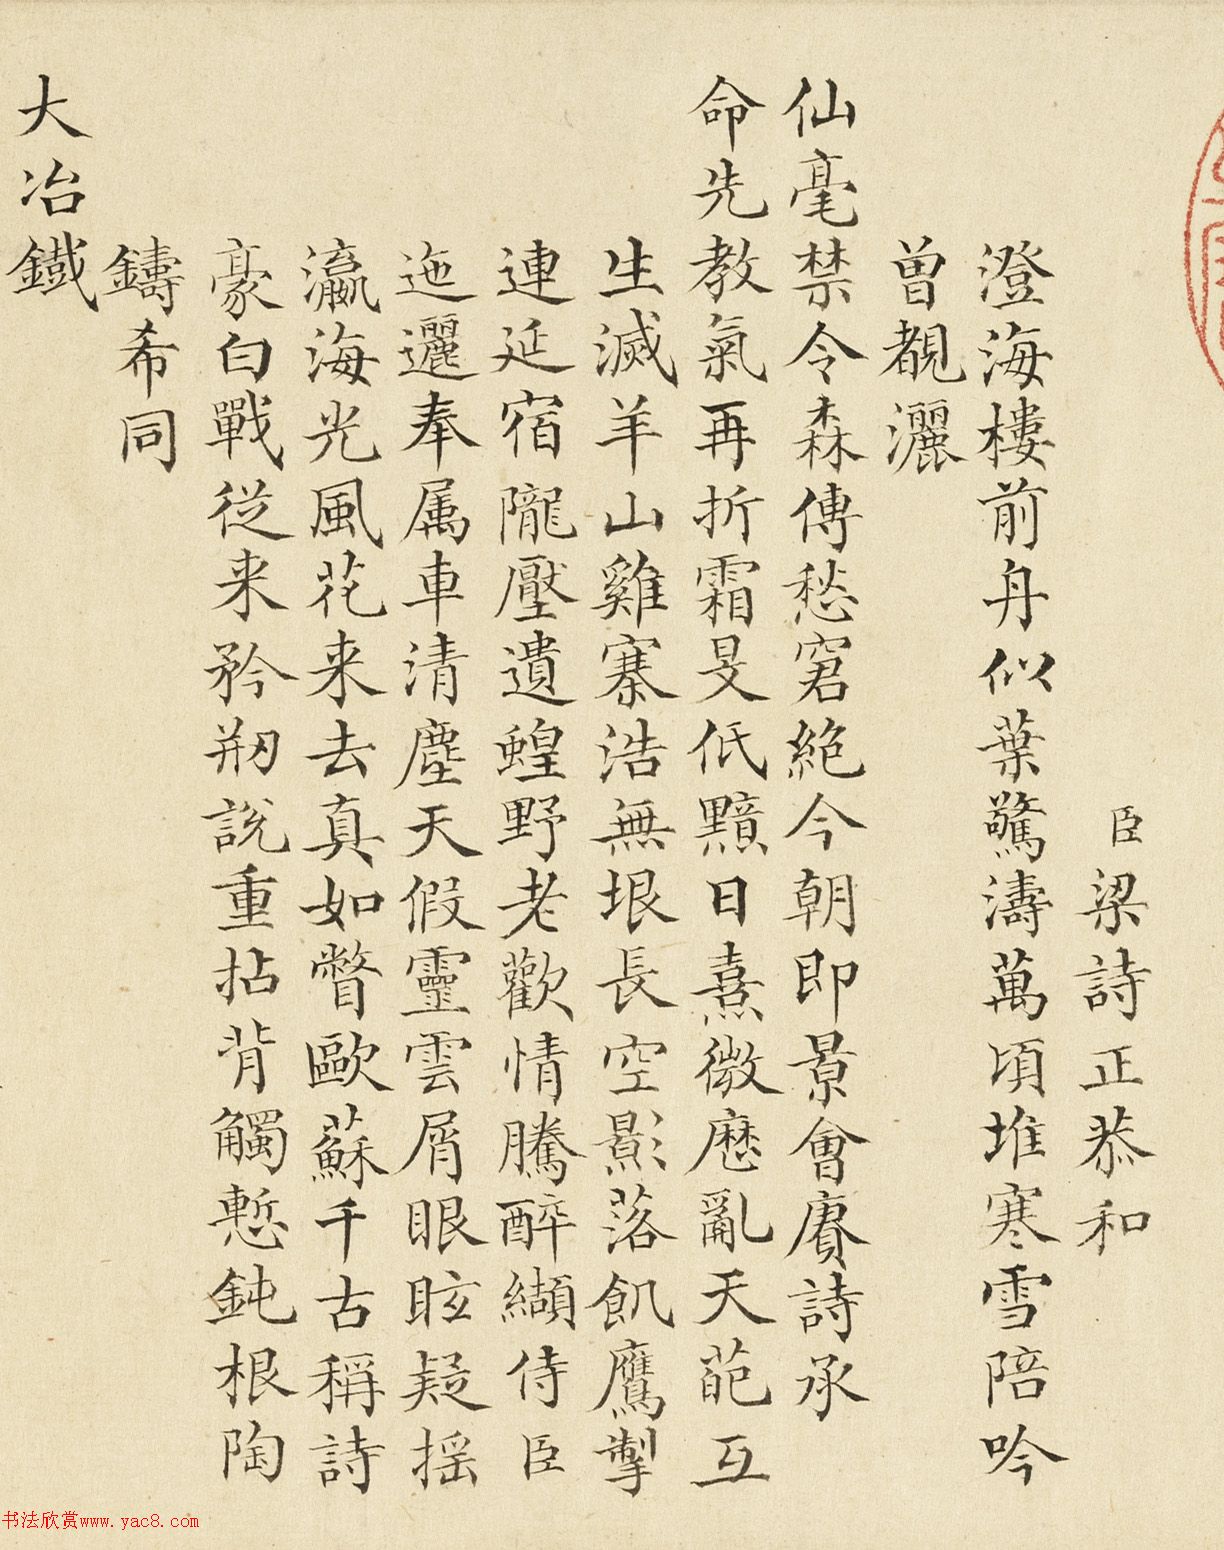 臣梁詩正恭和
澄海樓前舟似葉驚濤萬頃堆寒雪陪吟
曾覩灑
仙毫禁令森傳愁窘絶今朝即景會賡詩承
命先教氣再折霜旻低黯日熹微歷亂天葩互
生滅羊山雞寨浩無垠長空影落飢鷹掣
連延宿隴壓遺蝗野老歡情騰醉纈侍臣
迤邐奉属車清塵天假靈雲屑眼眩疑揺
瀛海光風花来去真如瞥歐蘇千古稱詩
豪白戰從来矜刱說重拈背觸慙鈍根陶
鑄希同
大冶鐵
书法欣赏www.yac8.com